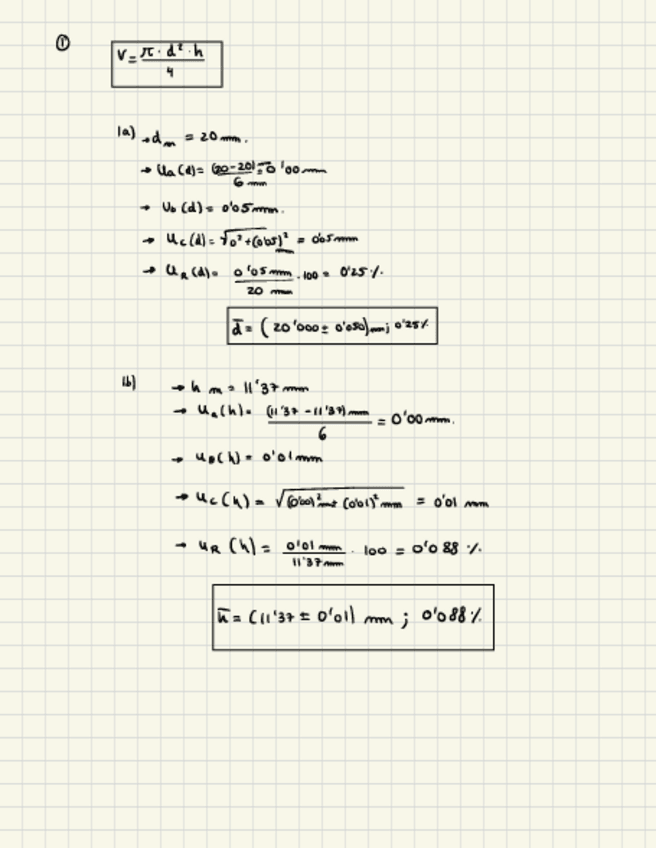 ①
V = π · d² · h / 4
1a) → d_m = 20 mm.
→ Ua (d) = (20-20) / 6 mm = 0'00 mm
→ Ub (d) = 0'05 mm.
→ Uc (d) = √0² + (0'05)² = 0'05 mm
→ UR (d) = 0'05 mm / 20 mm · 100 = 0'25 %.
d̄ = (20'000 ± 0'050) mm; 0'25 %
1b) → h m = 11'37 mm
→ Ua (h) = (11'37 - 11'37) mm / 6 = 0'00 mm.
→ UB (h) = 0'01 mm
→ Uc (h) = √(0'00)² mm + (0'01)² mm = 0'01 mm
→ UR (h) = 0'01 mm / 11'37 mm · 100 = 0'088 %.
h̄ = (11'37 ± 0'01) mm ; 0'088 %